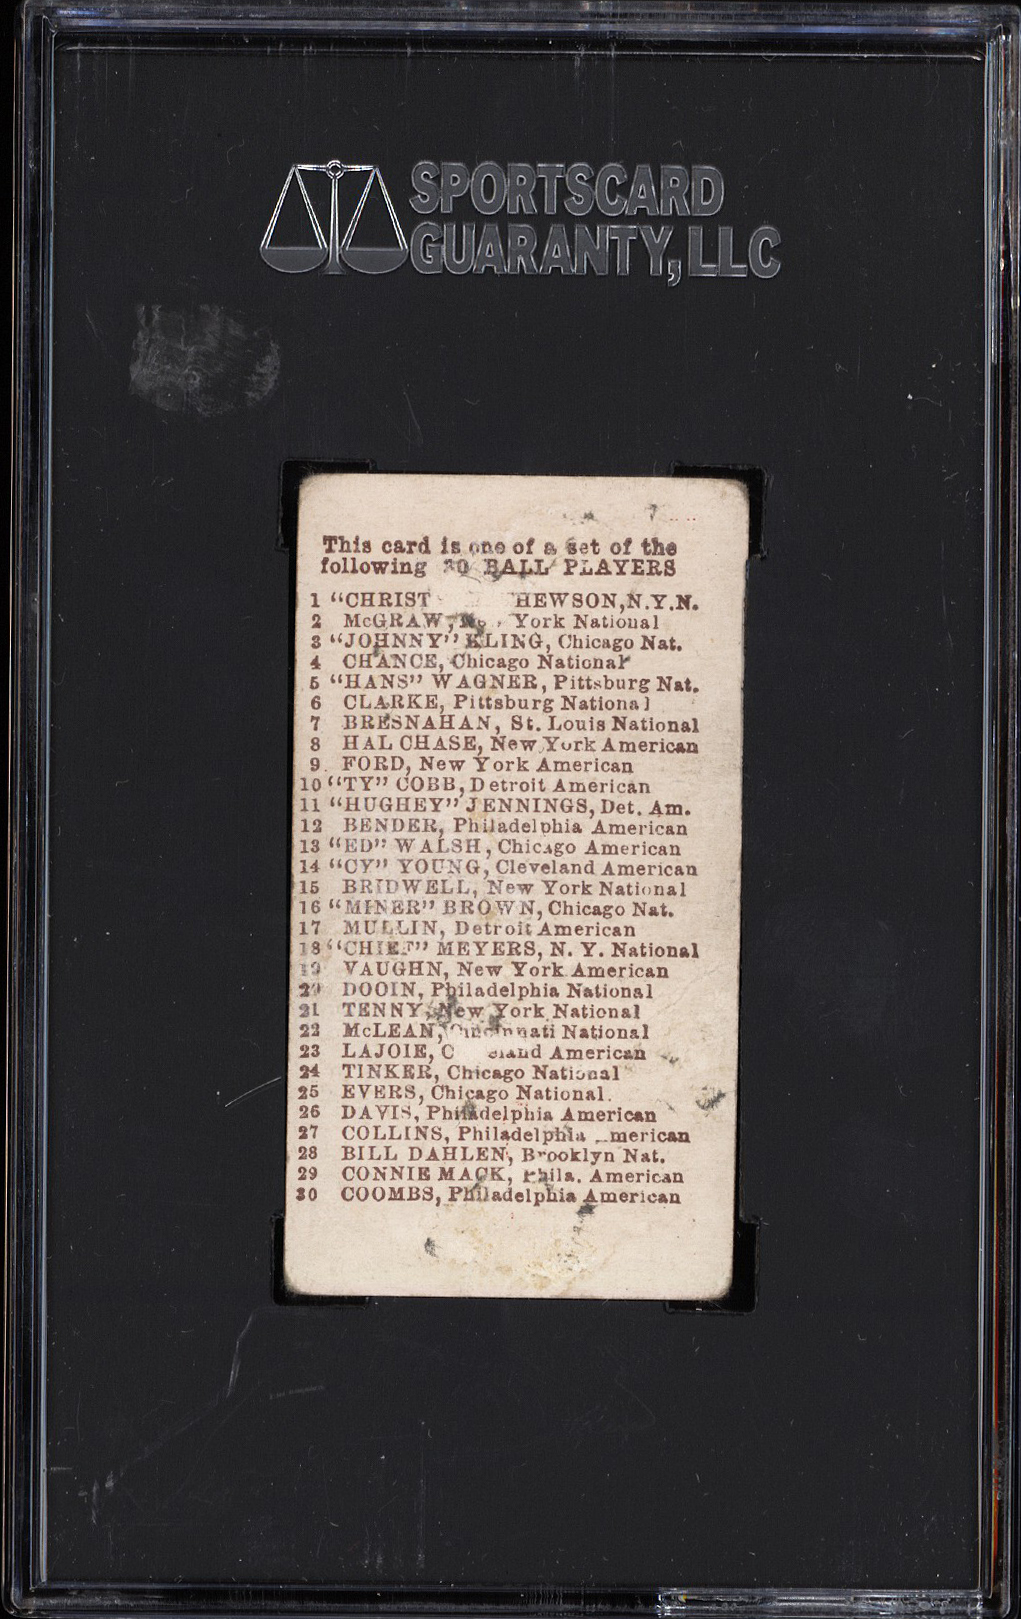 SPORTSCARD
GUARANTY, LLC
This card is one of a set of the
following 30 BALL PLAYERS
1 "CHRIST HEWSON, N.Y.N.
2 McGRAW, York National
3 "JOHNNY" KLING, Chicago Nat.
4 CHANCE, Chicago National
5 "HANS" WAGNER, Pittsburg Nat.
6 CLARKE, Pittsburg National
7 BRESNAHAN, St. Louis National
8 HAL CHASE, New York American
9. FORD, New York American
10 "TY" COBB, Detroit American
11 "HUGHEY" JENNINGS, Det. Am.
12 BENDER, Philadelphia American
13 "ED" WALSH, Chicago American
14 "CY" YOUNG, Cleveland American
15 BRIDWELL, New York National
16 "MINER" BROWN, Chicago Nat.
17 MULLIN, Detroit American
18 "CHIEF" MEYERS, N. Y. National
19 VAUGHN, New York American
20 DOOIN, Philadelphia National
21 TENNY, New York National
22 McLEAN, Cincinnati National
23 LAJOIE, C eland American
24 TINKER, Chicago National
25 EVERS, Chicago National.
26 DAVIS, Philadelphia American
27 COLLINS, Philadelphia American
28 BILL DAHLEN, Brooklyn Nat.
29 CONNIE MACK, Phila. American
30 COOMBS, Philadelphia American